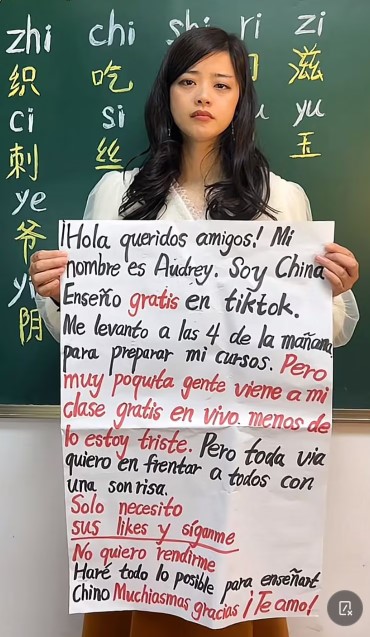 zhi chi shi ri zi
织 吃 滋
ci si ri yu
刺 丝 玉
ye
爷
阴
¡Hola queridos amigos! Mi
nombre es Audrey. Soy China
Enseño gratis en tiktok.
Me levanto a las 4 de la mañana
para preparar mi cursos. Pero
muy poquita gente viene a mi
clase gratis en vivo. menos de
lo estoy triste. Pero toda via
quiero en frentar a todos con
una sonrisa.
Solo necesito
sus likes y síganme
No quiero rendirme
Haré todo lo posible para enseñart
Chino Muchiasmas gracias ¡Te amo!